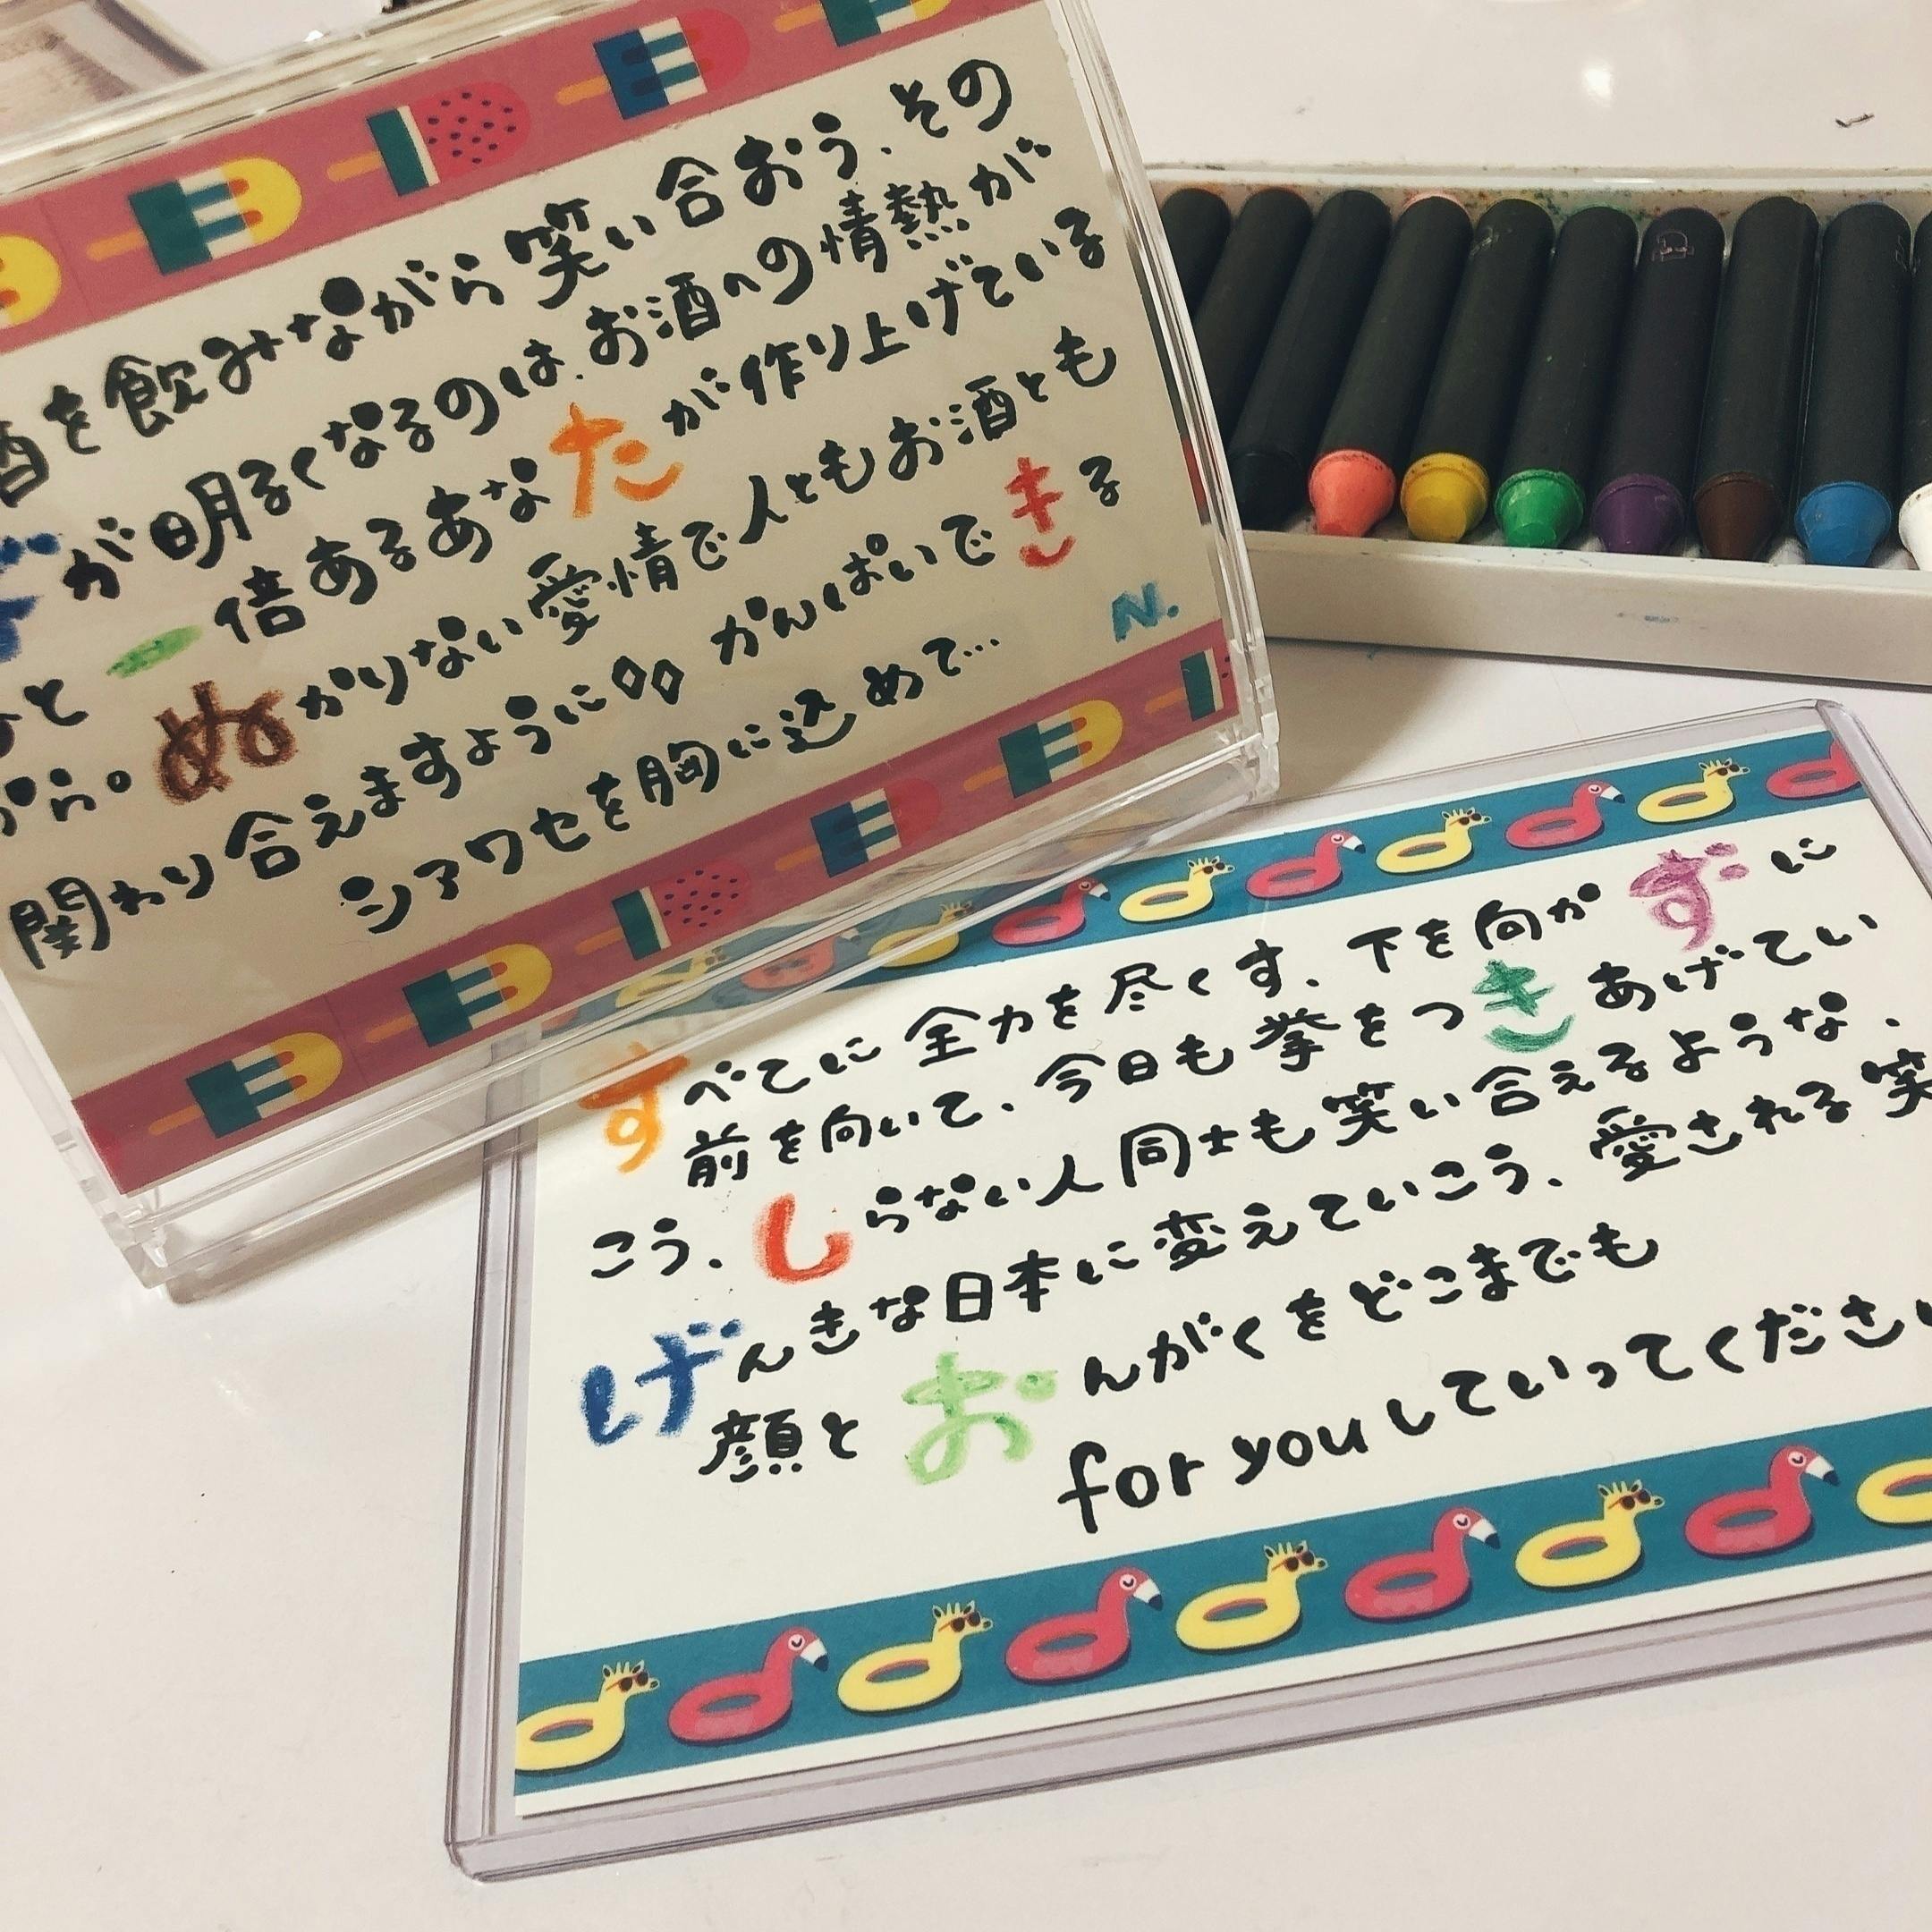 酒を飲みながら笑い合おう、その
が明るくなるのは、お酒への情熱が
と一倍あるあなたが作り上げている
から。ぬかりない愛情で人ともお酒とも
関わり合えますように◇◇かんぱいできる
シアワセを胸に込めて…
N.
すべてに全力を尽くす、下を向かずに
前を向いて、今日も拳をつきあげてい
こう、しらない人同士も笑い合えるような、
げんきな日本に変えていこう、愛される笑
顔とおんがくをどこまでも
for youしていってください